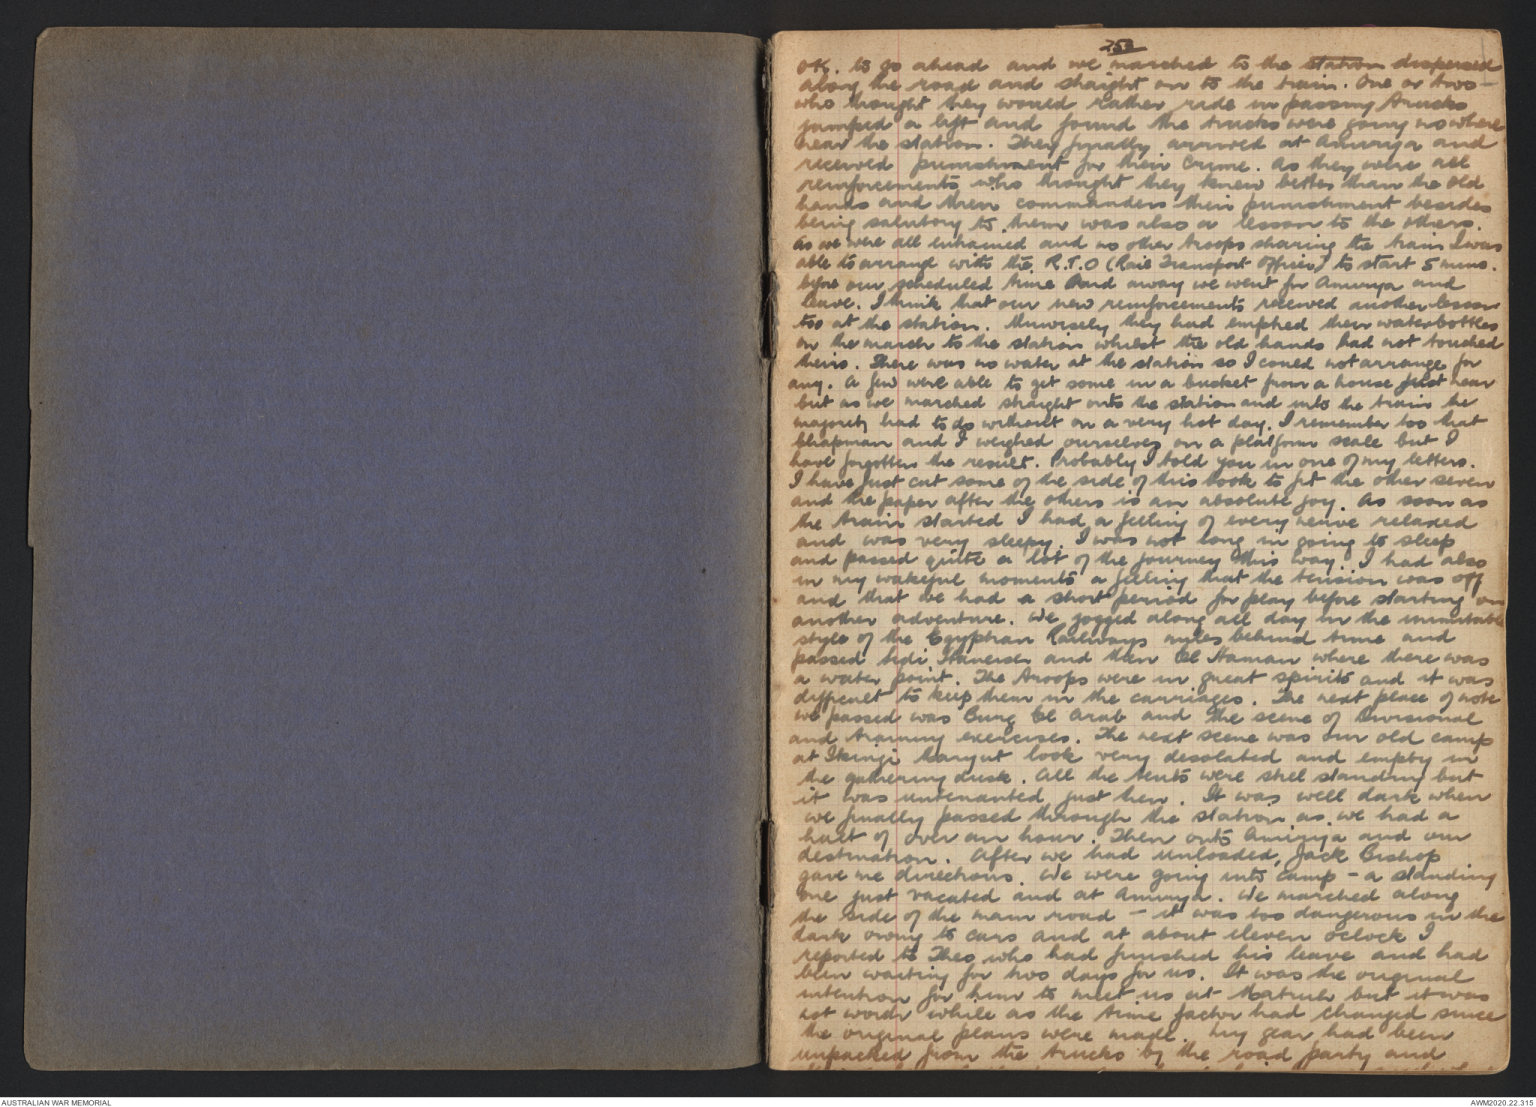 OK. to go ahead and we marched to the station dispersed
along the road and straight on to the train. One or two
who thought they would rather ride in passing trucks
jumped a lift and found the trucks were going nowhere
near the station. They finally arrived at Amiriya and
received punishment for their crime. As they were all
reinforcements who thought they knew better than the old
hands and their commanders their punishment besides
being salutory to them was also a lesson to the others.
As we were all entrained and no other troops sharing the train I was
able to arrange with the R.T.O (Rail Transport Officer) to start 5 mins.
before our scheduled time and away we went for Amiriya and
leave. I think that our new reinforcements received another lesson
too at the station. Unwisely they had emptied their waterbottles
on the march to the station whilst the old hands had not touched
theirs. There was no water at the station so I could not arrange for
any. A few were able to get some in a bucket from a house just near
but as we marched straight onto the station and into the train the
majority had to do without on a very hot day. I remember too that
Chapman and I weighed ourselves on a platform scale but I
have forgotten the result. Probably I told you in one of my letters.
I have just cut some of the side of this book to fit the other seven
and the paper after the others is an absolute joy. As soon as
the train started I had a feeling of every nerve relaxed
and was very sleepy. I was not long in going to sleep
and passed quite a lot of the journey this way. I had also
in my wakeful moments a feeling that the tension was off
and that we had a short period for play before starting on
another adventure. We jogged along all day in the inimitable
style of the Egyptian Railways miles behind time and
passed Sidi Haneish and then El Hamam where there was
a water point. The troops were in great spirits and it was
difficult to keep them in the carriages. The next place of note
we passed was Burg El Arab and the scene of Divisional
and training exercises. The next scene was our old camp
at Ikingi Maryut look very desolated and empty in
the gathering dusk. All the tents were still standing but
it was untenanted just then. It was well dark when
we finally passed through the station as we had a
halt of over an hour. Then onto Amiriya and our
destination. After we had unloaded, Jack Bishop
gave me directions. We were going into camp - a standing
one just vacated and at Amiriya. We marched along
the side of the main road - it was too dangerous in the
dark owing to cars and at about eleven oclock I
reported to Theo who had finished his leave and had
been waiting for two days for us. It was the original
intention for him to meet us at Matruh but it was
not worth while as the time factor had changed since
the original plans were made. My gear had been
unpacked from the trucks by the road party and
AUSTRALIAN WAR MEMORIAL
AWM2020.22.315